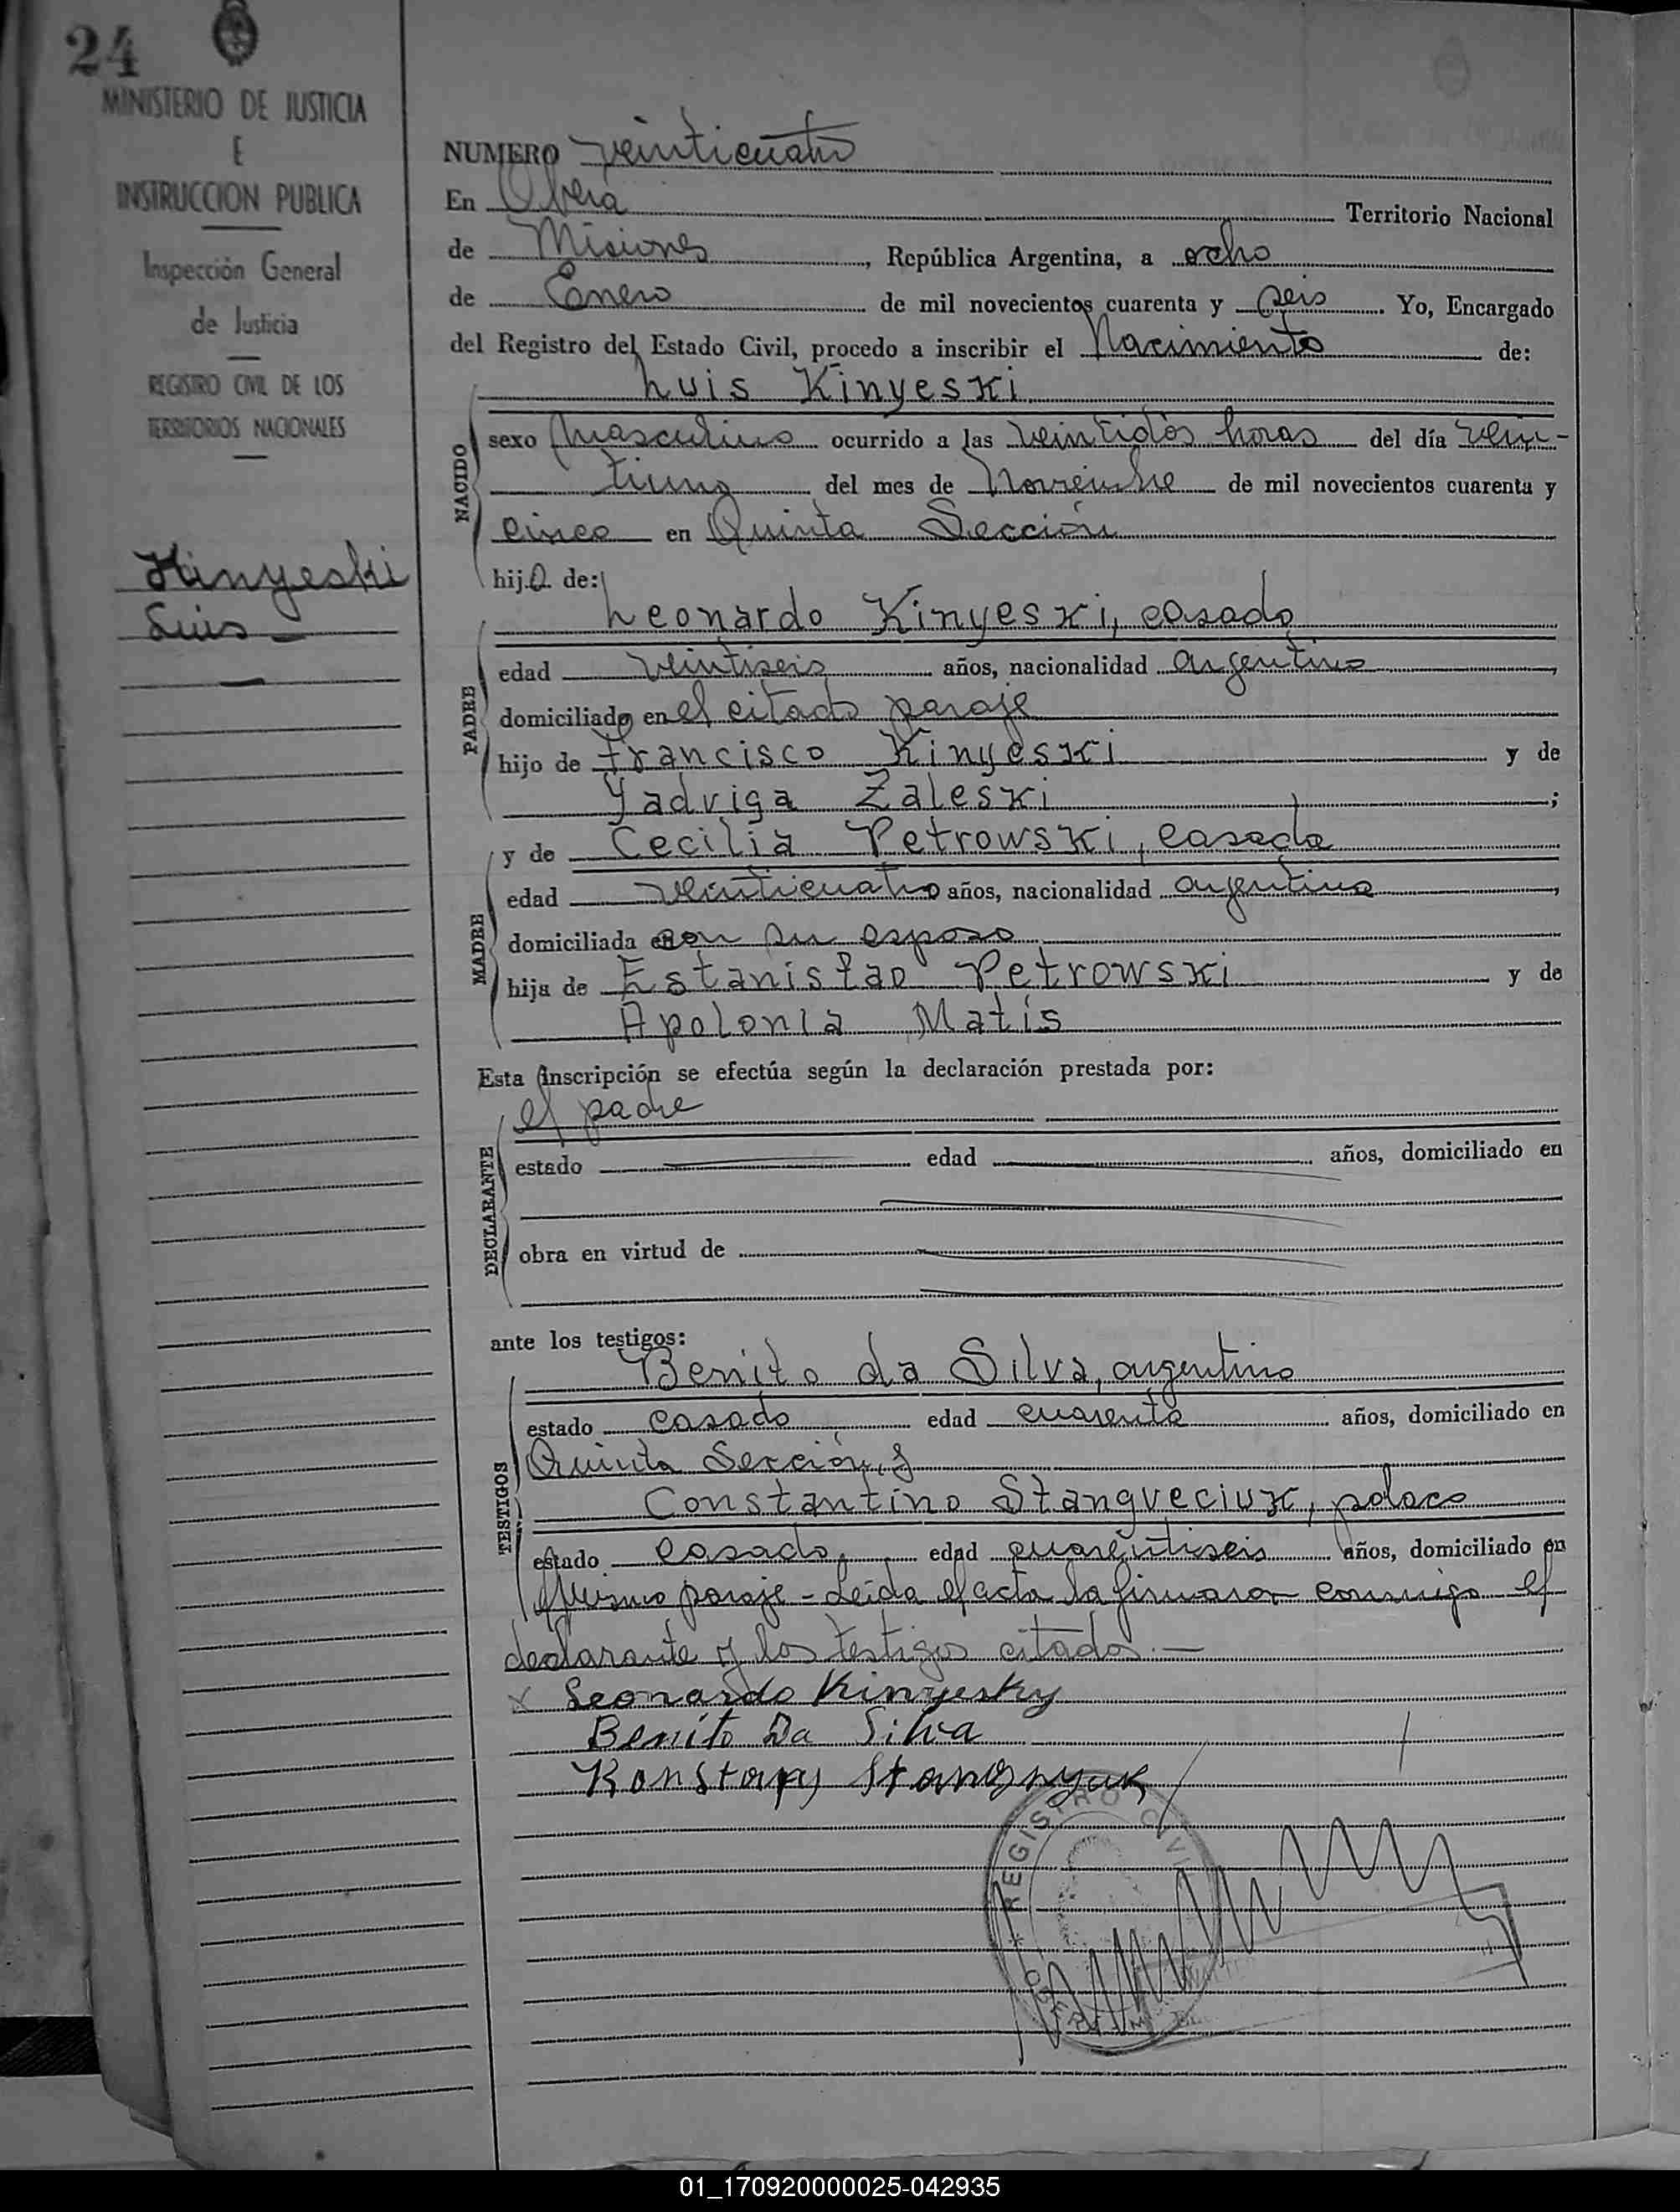 24
MINISTERIO DE JUSTICIA
E
INSTRUCCION PUBLICA
Inspección General
de Justicia
REGISTRO CIVIL DE LOS
TERRITORIOS NACIONALES
Kinyeski
Luis
NUMERO veinticuatro
En Oberá Territorio Nacional
de Misiones, República Argentina, a ocho
de Enero de mil novecientos cuarenta y seis. Yo, Encargado
del Registro del Estado Civil, procedo a inscribir el Nacimiento de:
NACIDO
Luis Kinyeski
sexo masculino ocurrido a las veintidós horas del día vein-
tiuno del mes de Noviembre de mil novecientos cuarenta y
cinco en Quinta Sección
hijo de:
PADRE
Leonardo Kinyeski, casado
edad veintiseis años, nacionalidad argentino,
domiciliado en el citado paraje
hijo de Francisco Kinyeski y de
Yadviga Zaleski;
MADRE
y de Cecilia Petrowski, casada
edad veinticuatro años, nacionalidad argentina,
domiciliada con su esposo
hija de Estanislao Petrowski y de
Apolonia Matis
Esta inscripción se efectúa según la declaración prestada por:
DECLARANTE
el padre
estado edad años, domiciliado en
obra en virtud de
ante los testigos:
TESTIGOS
Benito da Silva, argentino
estado casado edad cuarenta años, domiciliado en
Quinta Sección, y
Constantino Stangveciuk, polaco
estado casado, edad cuarentiseis años, domiciliado en
mismo paraje - Leida el acta la firmaron conmigo el
declarante y los testigos citados.—
x Leonardo Kinyesky
Benito Da Silva
REGISTRO CIVIL
01_170920000025-042935